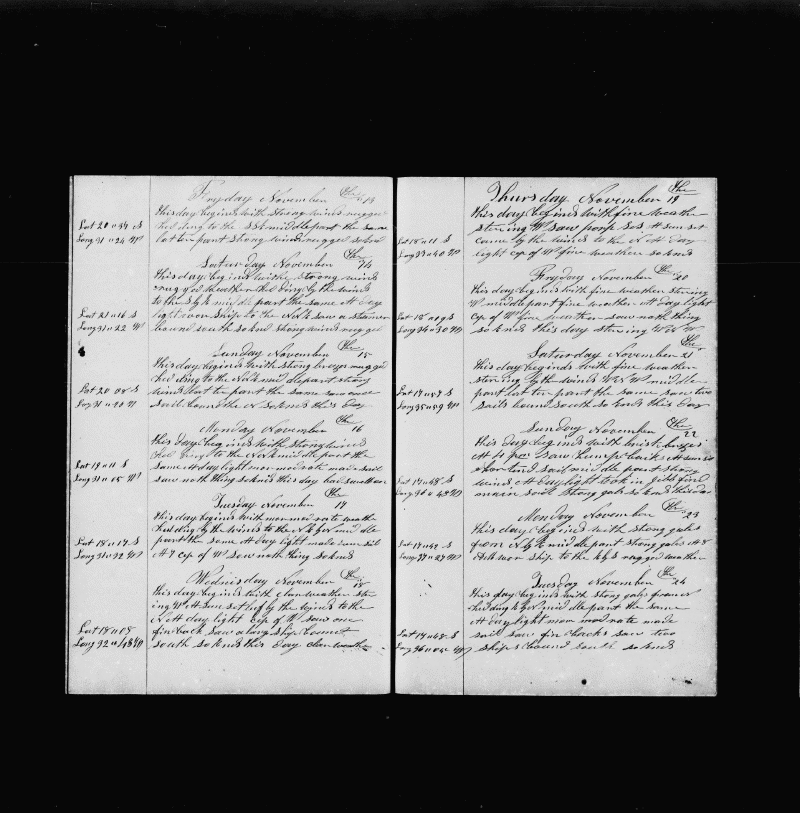 Fryday November The 13
this day begins with strong winds rugged
heding to the SSE middle part the same
later part strong winds rugged so ends
Lat 20 " 34 S
Long 31 " 24 W
Saturday November The 14
this day begins withe strong winds
rugged weather heding by the winds
to the S by E middle part the same At day
light wore ship to the NNE saw a steamer
bound south so ends strong winds rugged
Lat 21 " 16 S
Long 31 " 22 W
Sunday November The 15
this day begins with strong breeses rugged
heding to the NNE middle part strong
winds later part the same saw one
sail bound the N so ends this day
Lat 20 " 08 S
Long 31 " 20 W
Monday November The 16
this day begins with strong winds
heding to the NNE middle part the
same At day light mor modrate made sail
saw nothing so ends this day
Lat 19 " 11 S
Long 31 " 05 W
Tuesday November The 17
this day begins with mor modrate weather
heding by the winds to the middle
part the same At day light made some sail
At 7 up of W saw nothing so ends
Lat 18 " 17 S
Long 31 " 32 W
Wednisday November The 18
this day begins with clear weather ste
ing W At sun set by the winds to the
N At day light up of W saw one
finback saw a long ship bound
south so ends this day clear weather
Lat 18 " 08
Long 32 " 48 W
Thursday November The 19
this day begins with fine weather
stering W saw At sun set
came by the winds to the N At day
light up of W fine weather so ends
Lat 18 " 11 S
Long 33 " 40 W
Fryday November The 20
this day begins with fine weather stering
W middle part fine weather At day light
up of W fine weather saw nothing
so ends this day stering
Lat 18 " 09 S
Long 34 " 30 W
Saturday November The 21
this day begins with fine weather
stering by the winds middle
part later part the same saw two
sails bound south so ends this day
Lat 17 " 57 S
Long 35 " 59 W
Sunday November The 22
this day begins with brisk breeses
At saw humpbacks At sun set
shortend sail middle part strong
winds At daylight took in jibs furld
main sail strong gals so ends this day
Lat 17 " 48 S
Long 36 " 43 W
Monday November The 23
this day begins with strong gals
from middle part strong gals At 8
wore ship to the rugged weather
Lat 17 " 42 S
Long 37 " 27 W
Tuesday November The 24
this day begins with strong gals from
heding middle part the same
At day light mor modrate made
sail saw finbacks saw two
ships bound south so ends
Lat 17 " 48 S
Long 36 " 04 W